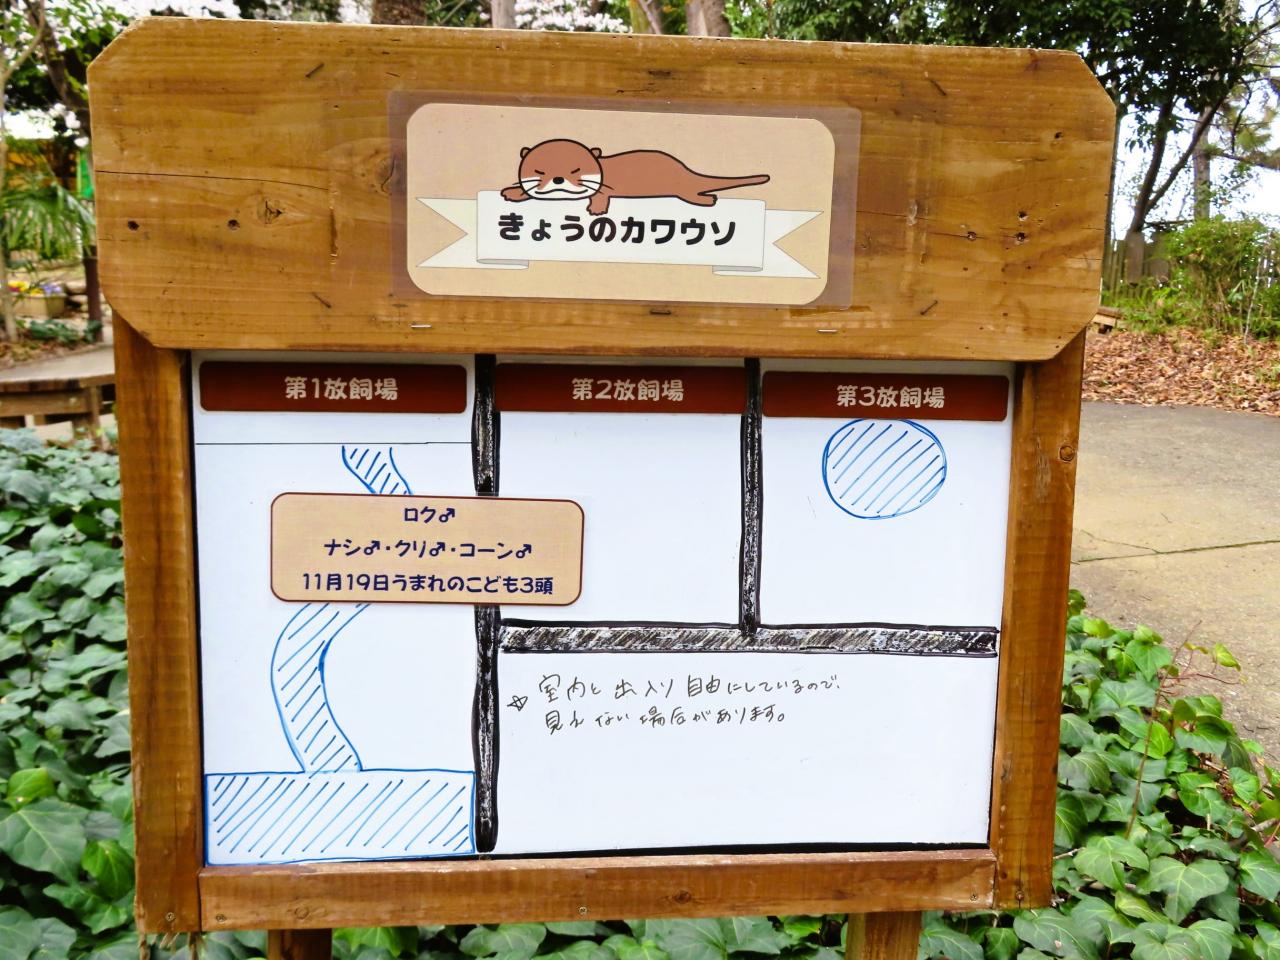 きょうのカワウソ
第1放飼場
第2放飼場
第3放飼場
ロク♂
ナシ♂・クリ♂・コーン♂
11月19日うまれのこども3頭
☆室内と出入り自由にしているので、
見えない場合があります。